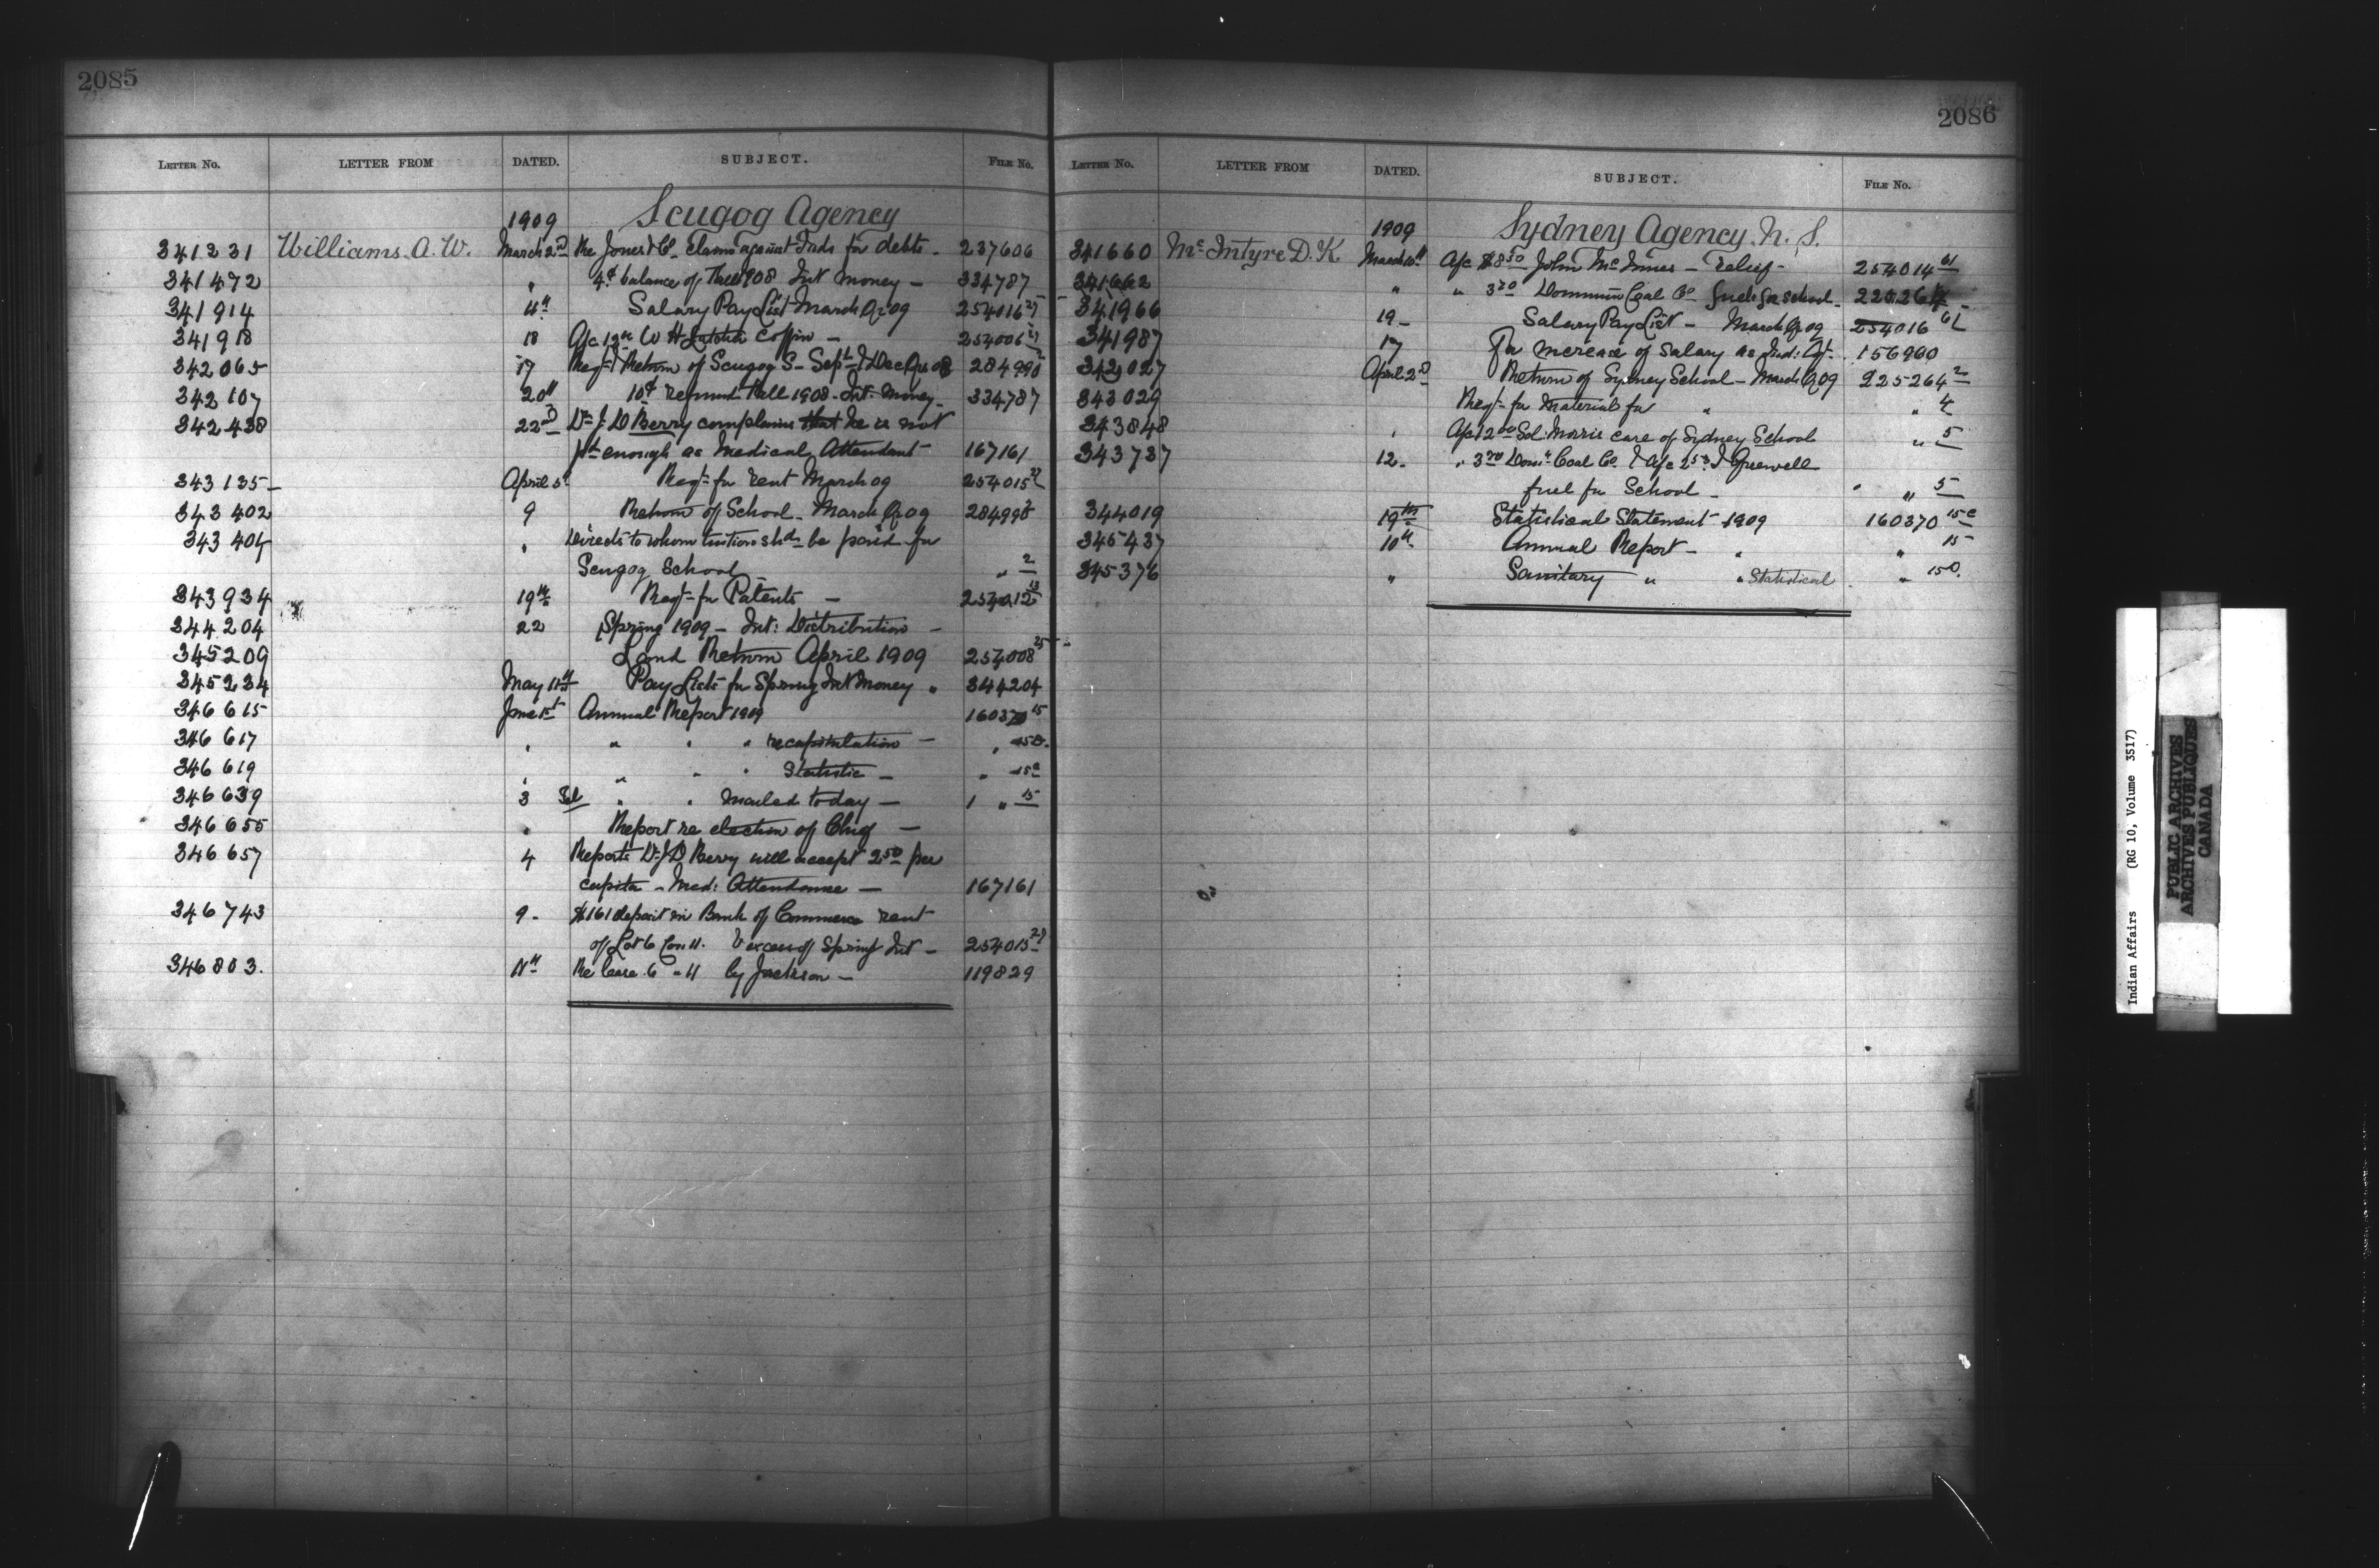 2085
LETTER No. LETTER FROM DATED. SUBJECT. FILE No.
Scugog Agency
1909
341231 Williams A. W. March 2nd Re Jones & Co. Claims against Inds for debts - 237606
341472 " 4¢ balance of Fall 1908 Int money - 334787
341914 11th Salary Pay List March Qr 09 254016 27
341918 18 A/c 12 00 W H Coffin - 254006 27
342065 17 Reqt Return of Scugog S - Sept & Dec Qrs 08 284990 2
342107 20th 10¢ refund Fall 1908 - Int. Money - 334787
342438 22nd Dr. J. D Berry complains that he is not
pd enough as Medical Attendant 167161
343135 April 5th Reqt for rent March 09 254015 27
343402 9 Return of School - March Qr 09 284990 2
343404 " Directs to whom tuition shd be paid for
Scugog School - " 2
343934 19th Reqt for Patents - 254012 13
344204 22 Spring 1909 - Int: Distribution -
345209 Land Return April 1909 254008 25
345234 May 11th Pay Lists for Spring Int Money " 344204
346615 June 1st Annual Report 1909 160370 15
346617 " " " " recapitulation - "
346619 " " " " Statistic - " 15c
346639 3 " " mailed today - 1 " 15
346655 " Report re election of Chief -
346657 4 Reports Dr J D Berry will accept 2.50 per
capita - Med: Attendance - 167161
346743 9 - $161 deposit in Bank of Commerce rent
of Lot 6 Con 11. & excess of Spring Int - 254015 27
346803. 11th Re lease 6 - 11 by Jackson - 119829
2086
LETTER No. LETTER FROM DATED. SUBJECT. FILE No.
Sydney Agency N. S.
1909
341660 McIntyre D. K March 10th A/c $8 50 John McInnes - relief - 254014 61
341662 " " 3 70 Dominion Coal Co fuel for school - 225264
341966 19 - Salary Pay List - March Qr 09 254016 61
341987 17 For increase of Salary as Ind: Agt - 156960
343027 April 2nd Return of Sydney School - March Q 09 225264 2
343029 Reqt for material for " " 4
343848 " A/c 12 00 Sol: Morris care of Sydney School " 5
343737 12 - " 3 70 Domn Coal Co. & A/c 2 53 J Greenwell
fuel for School - " " 5
344019 19th Statistical Statement 1909 160370 15c
345437 10th Annual Report - " " 15
345376 " Sanitary " " Statistical " 15D.
Indian Affairs (RG 10, Volume 3517)
PUBLIC ARCHIVES
ARCHIVES PUBLIQUES
CANADA